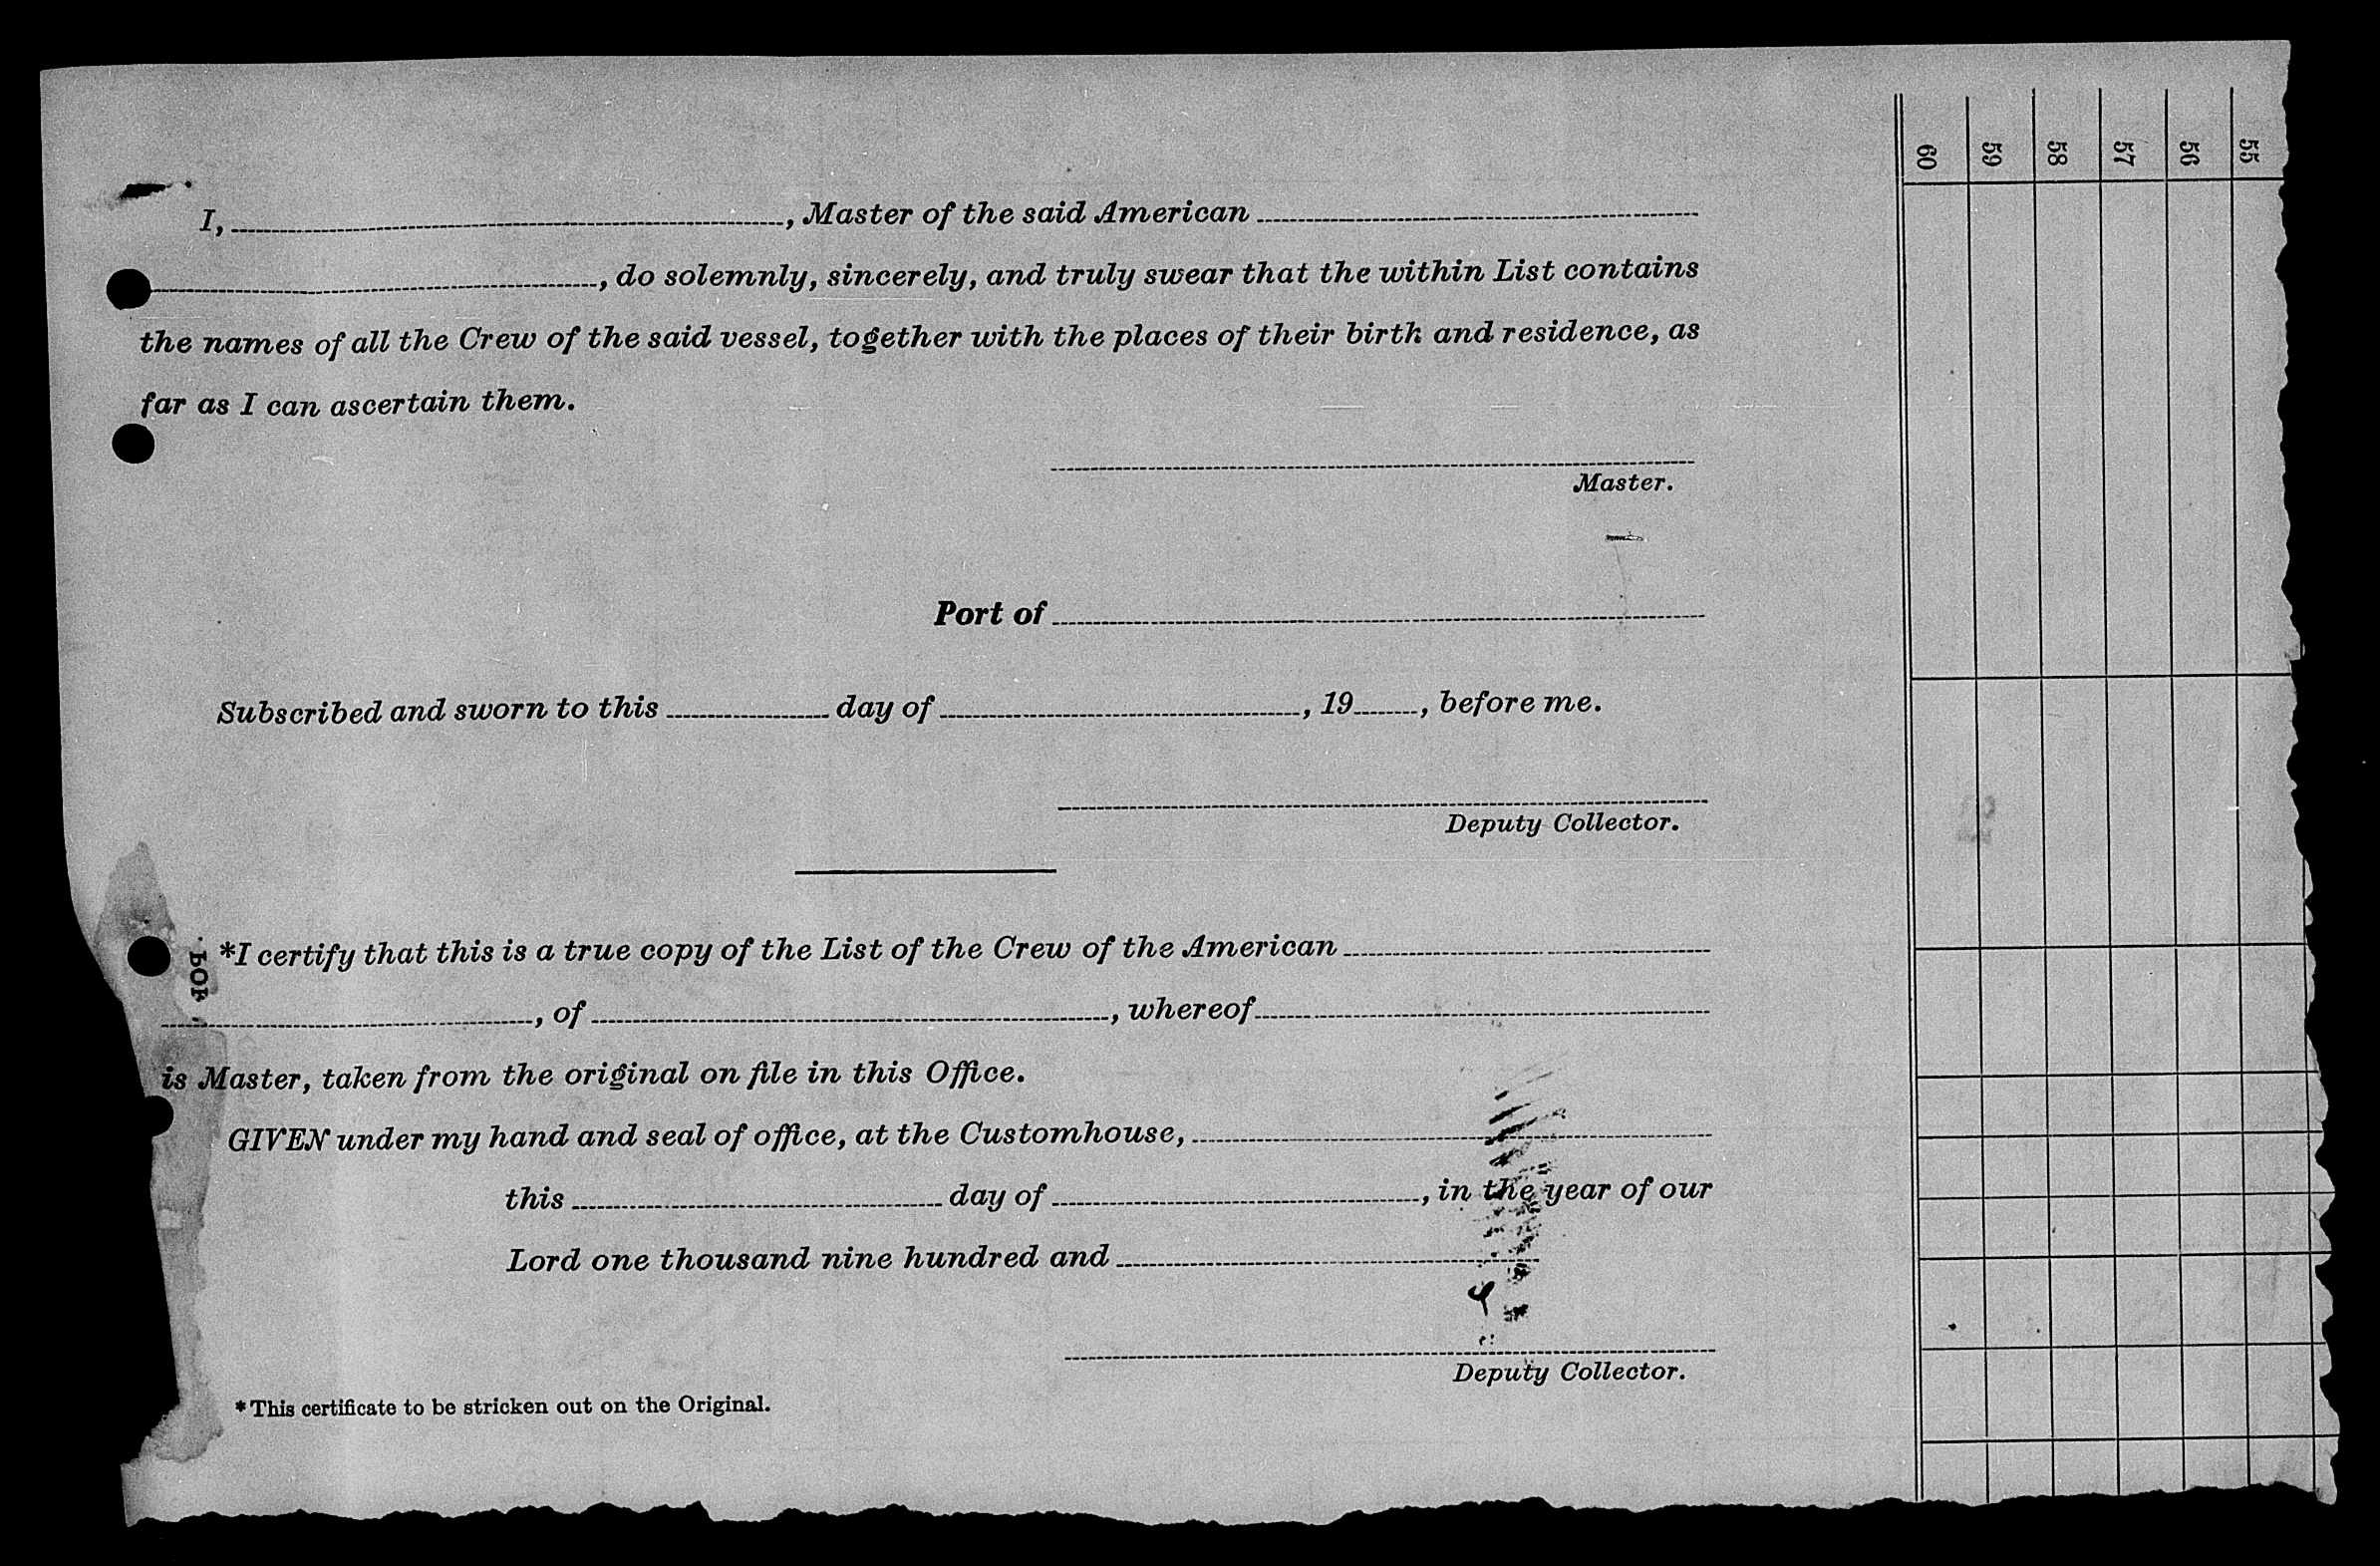 I, ..., Master of the said American ...
..., do solemnly, sincerely, and truly swear that the within List contains
the names of all the Crew of the said vessel, together with the places of their birth and residence, as
far as I can ascertain them.
Master.
Port of ...
Subscribed and sworn to this ... day of ..., 19..., before me.
Deputy Collector.
*I certify that this is a true copy of the List of the Crew of the American ...
..., of ..., whereof ...
is Master, taken from the original on file in this Office.
GIVEN under my hand and seal of office, at the Customhouse, ...
this ... day of ..., in the year of our
Lord one thousand nine hundred and ...
Deputy Collector.
*This certificate to be stricken out on the Original.
60 59 58 57 56 55